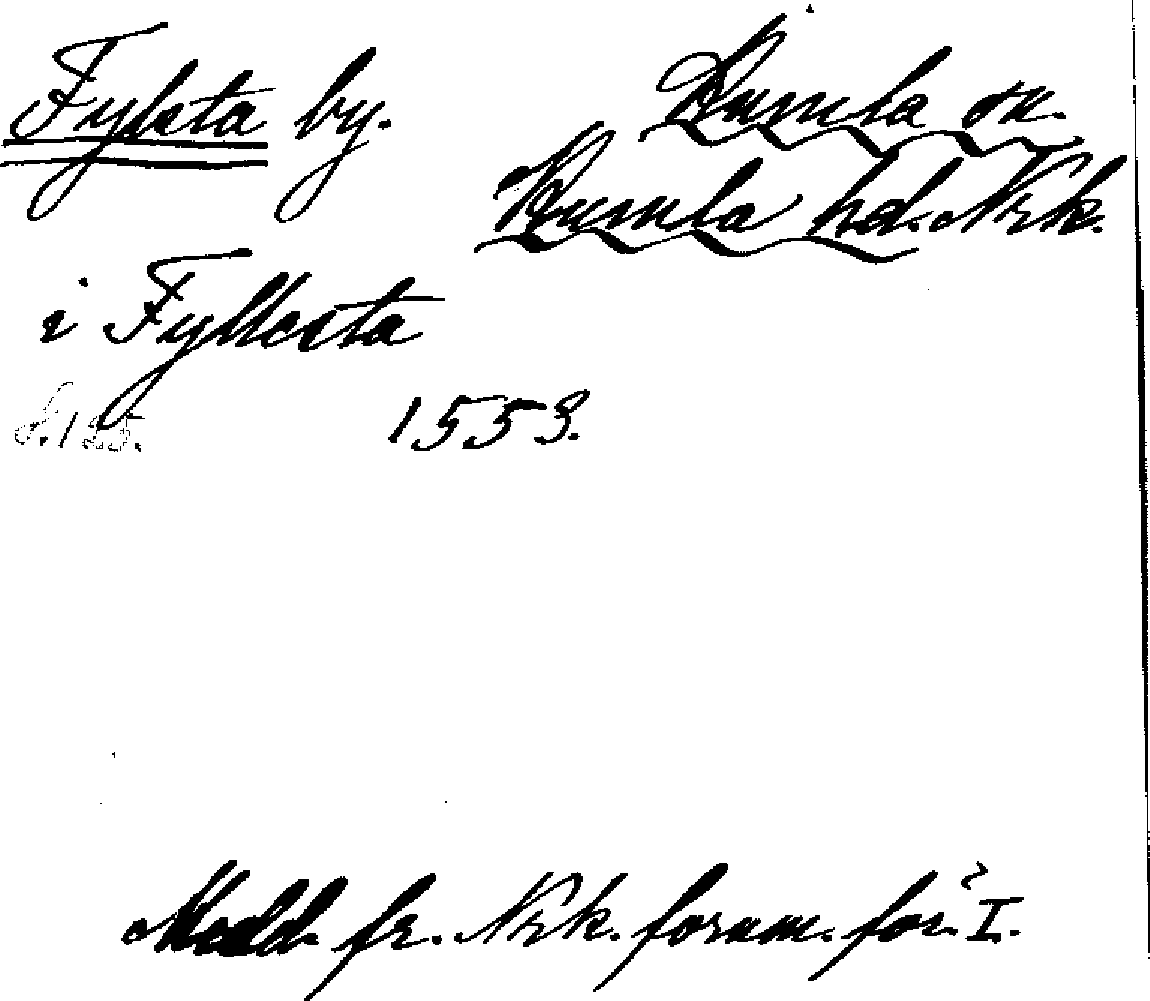 Fylsta by. Kumla sn.
Kumla hd. Nrk.
i Fyllesta
S. 125. 1553.
Medd. fr. Nrk. fornm. för. I.